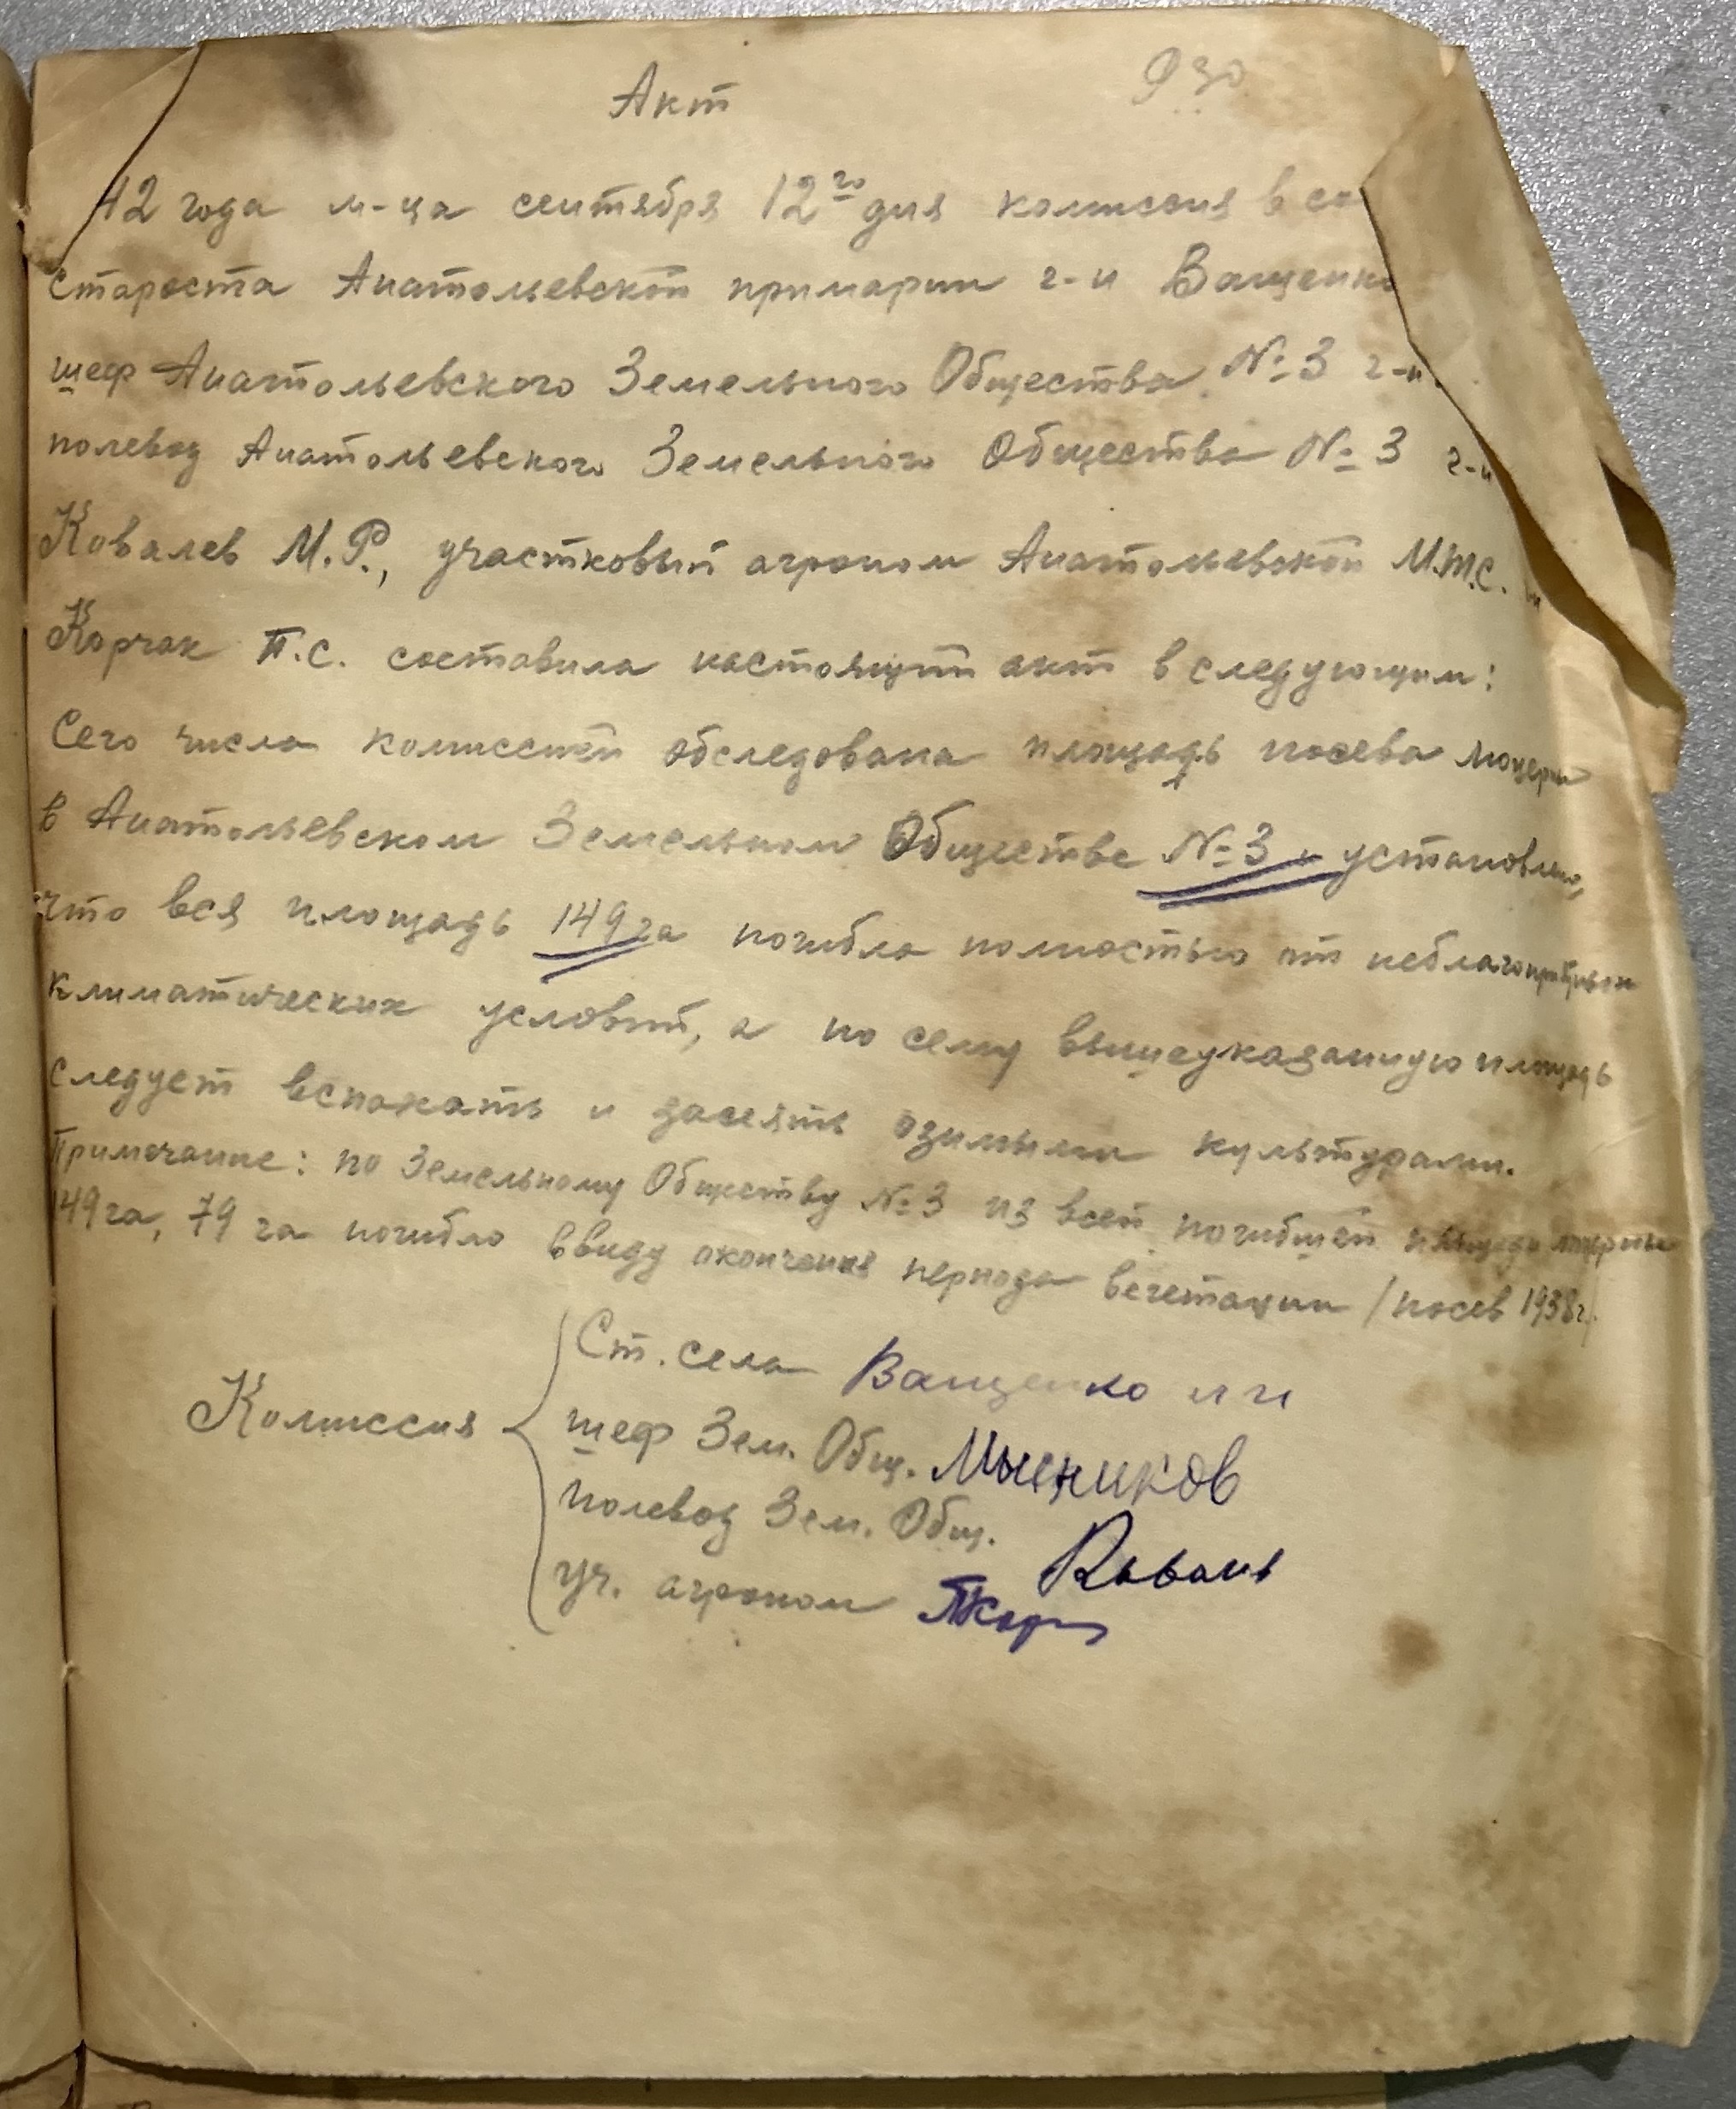 Акт
42 года м-ца сентября 12го дня комиссия в со
староста Анатольевской примарии г-н Ващенко
шеф Анатольевского Земельного Общества №3 г-н
полевод Анатольевского Земельного Общества №3 г-н
Ковалев М.Р., участковый агроном Анатольевской М.Т.С.
Корчак П.С. составила настоящий акт в следующем:
Сего числа комиссией обследована площадь посева люцерны
в Анатольевском Земельном Обществе №3 и установлено,
что вся площадь 149 га погибла полностью от неблагоприятных
климатических условий, а по сему вышеуказанную площадь
следует вспахать и засеять озимыми культурами.
Примечание: по Земельному Обществу №3 из всей погибшей площади люцерны
149 га, 79 га погибло ввиду окончания периода вегетации /посев 1938 г./
Ст. села Ващенко
Комиссия шеф Зем. Общ. Мысников
полевод Зем. Общ. Коваль
уч. агроном